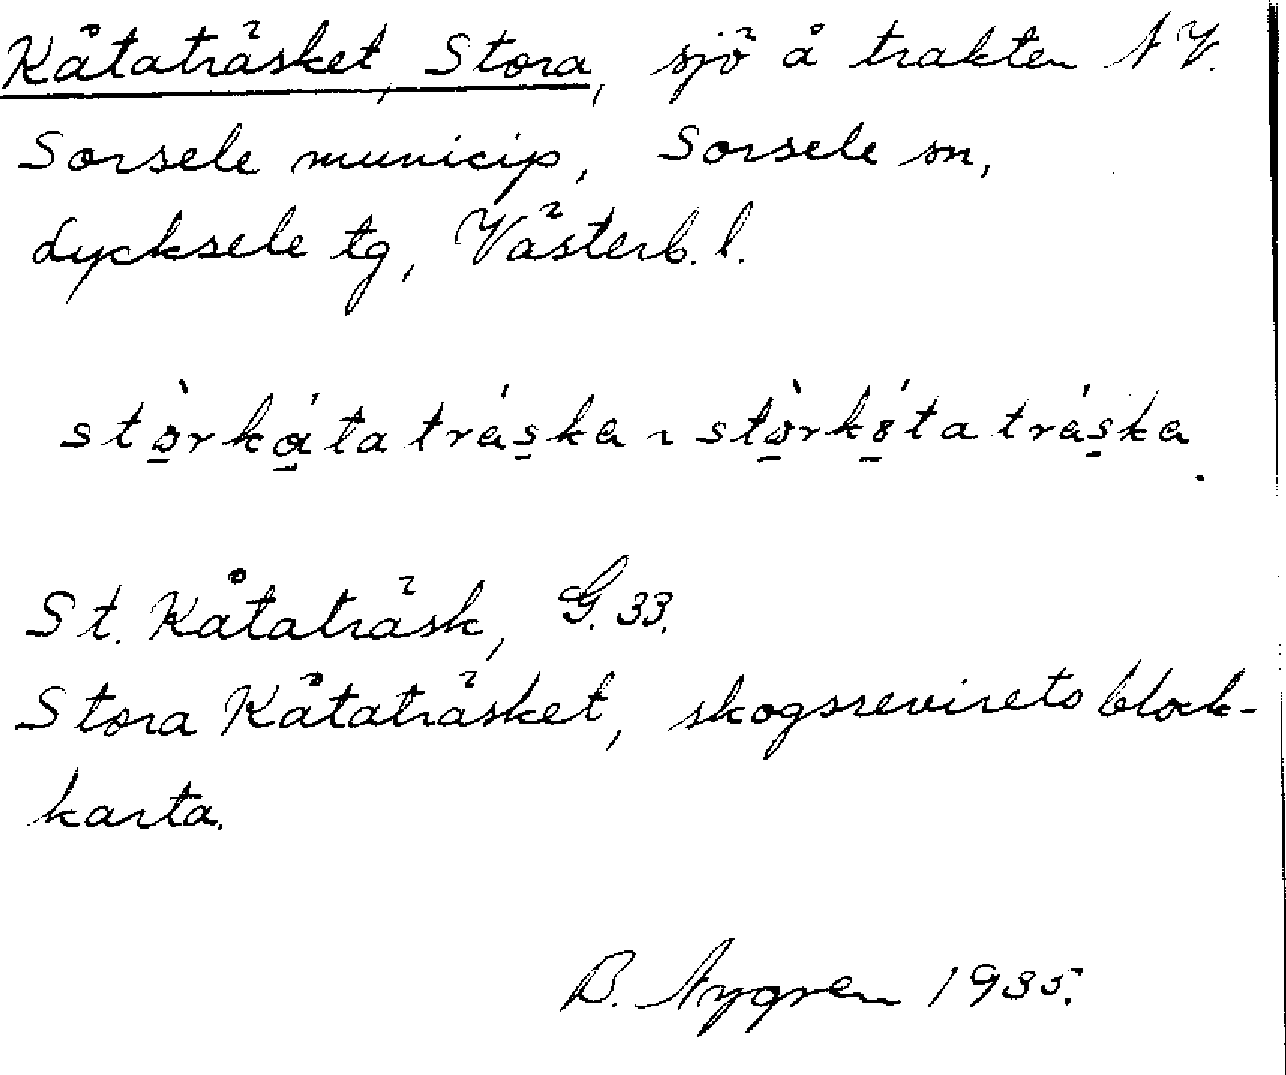 Kåtaträsket, Stora, sjö å trakten NV.
Sorsele municip, Sorsele sn,
Lycksele tg, Västerb. l.
stò̱rká̱ta trás̱ka ~ stò̱rkó̱ta trás̱ka.
St. Kåtaträsk, G. 33.
Stora Kåtaträsket, skogsrevirets block-
karta.
B. Nygren 1935.